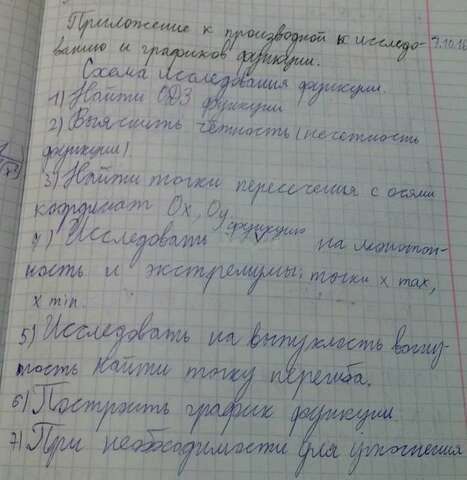 Приложение к производной к исследо- 7.10.16
ванию и графиков функции.
Схема исследования функции.
1) Найти ОДЗ функции
2) Выяснить чётность (нечетность
функции).
3) Найти точки пересечения с осями
координат Ox, Oy
4) Исследовать функцию на монотон-
ность и экстремумы; точки x max,
x min.
5) Исследовать на выпуклость вогну-
тость найти точку перегиба.
6) Построить график функции
7) При необходимости для уточнения